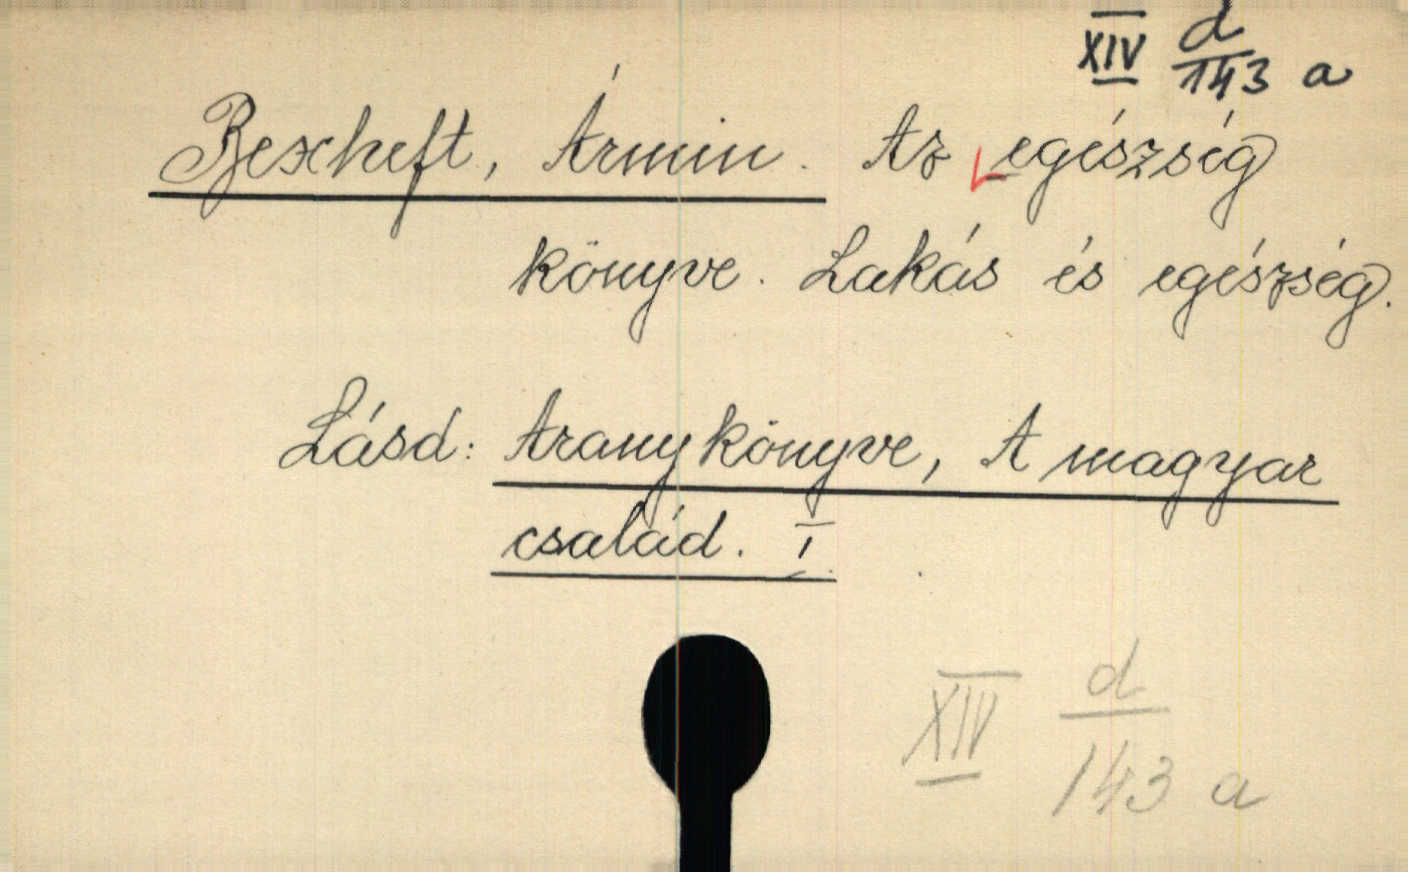 XIV d/143 a
Bexheft, Ármin. Az egészség
könyve. Lakás és egészség.
Lásd: Arany könyve, A magyar
család. I.
XIV d/143 a